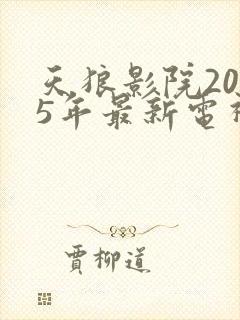 天狼影院20
5年最新電
賈柳道